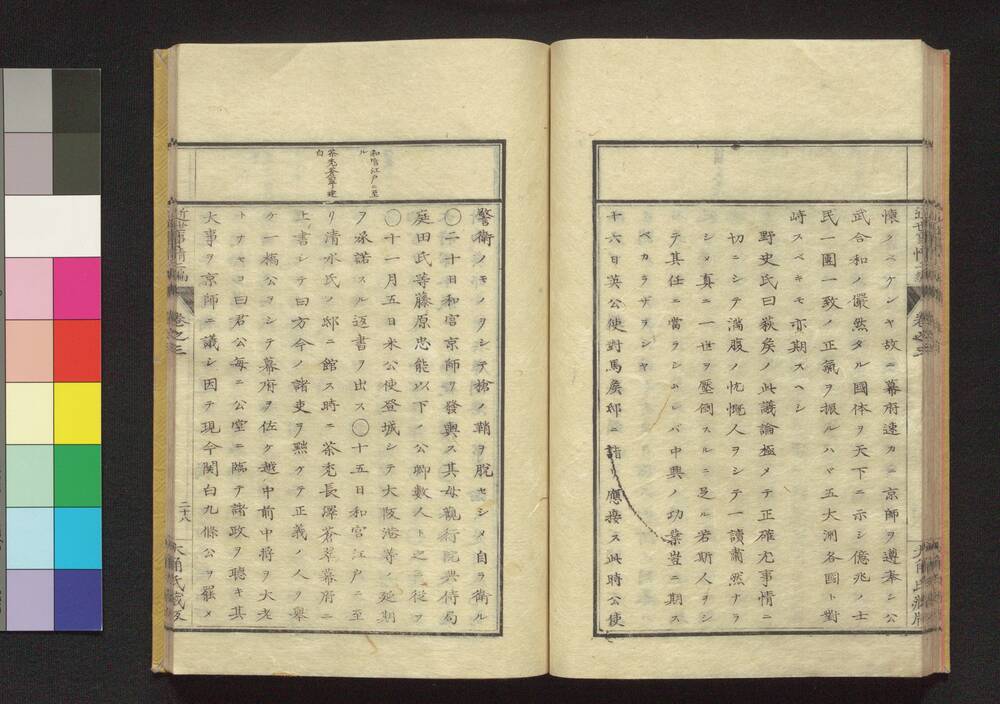 懷ノベケンヤ故ニ幕府速カニ京師ヲ遵奉シ公
武合和ノ儼然タル國体ヲ天下ニ示シ億兆ノ士
民一團一致ノ正氣ヲ振ルハヾ五大洲各國ト對
峙スベキモ亦期スヘシ
野史氏曰荻矦ノ此議論極メテ正確尤事情ニ
切ニシテ滿腹ノ忱慨人ヲシテ一讀肅然ナラ
シメ真ニ一世ヲ壓倒スルニ足ル若斯人ヲシ
テ其任ニ當ラシムレバ中興ノ功業豈ニ期ス
ベカラザランヤ
十六日英公使對馬矦邸ニ詣リ應接ス此時公使
警衛ノモノヲシテ槍ノ鞘ヲ脱セシメ自ラ衛ル
〇二十日和宮京師ヲ發輿ス其母觀行院典侍局
庭田氏等藤原忠能以下ノ公卿數人ト之ニ從フ
〇十一月五日米公使登城シテ大阪港等ノ延期
ヲ承諾スル返書ヲ出ス〇十五日和宮江戸ニ至
リ清水氏ノ邸ニ館ス時ニ茶禿長澤蒼翠幕府ニ
上書シテ曰方今ノ諸吏ヲ黜ケテ正義ノ人ヲ舉
ケ一橋公ヲシテ幕府ヲ佐ケ越中前中将ヲ大老
トナサヨ曰君公毎ニ公室ニ臨テ諸政ヲ聴キ其
大事ヲ京師ニ議シ因テ現今関白九條公ヲ罷メ
和宮江戸ニ至
ル
茶禿蒼翠建
白
近世事情二編
卷之三
二十八